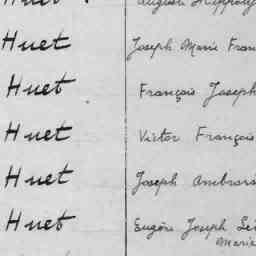 Huet Auguste Hippoly
Huet Joseph Marie Fran
Huet François Joseph
Huet Victor François
Huet Joseph Ambrois
Huet Eugène Joseph
Marie